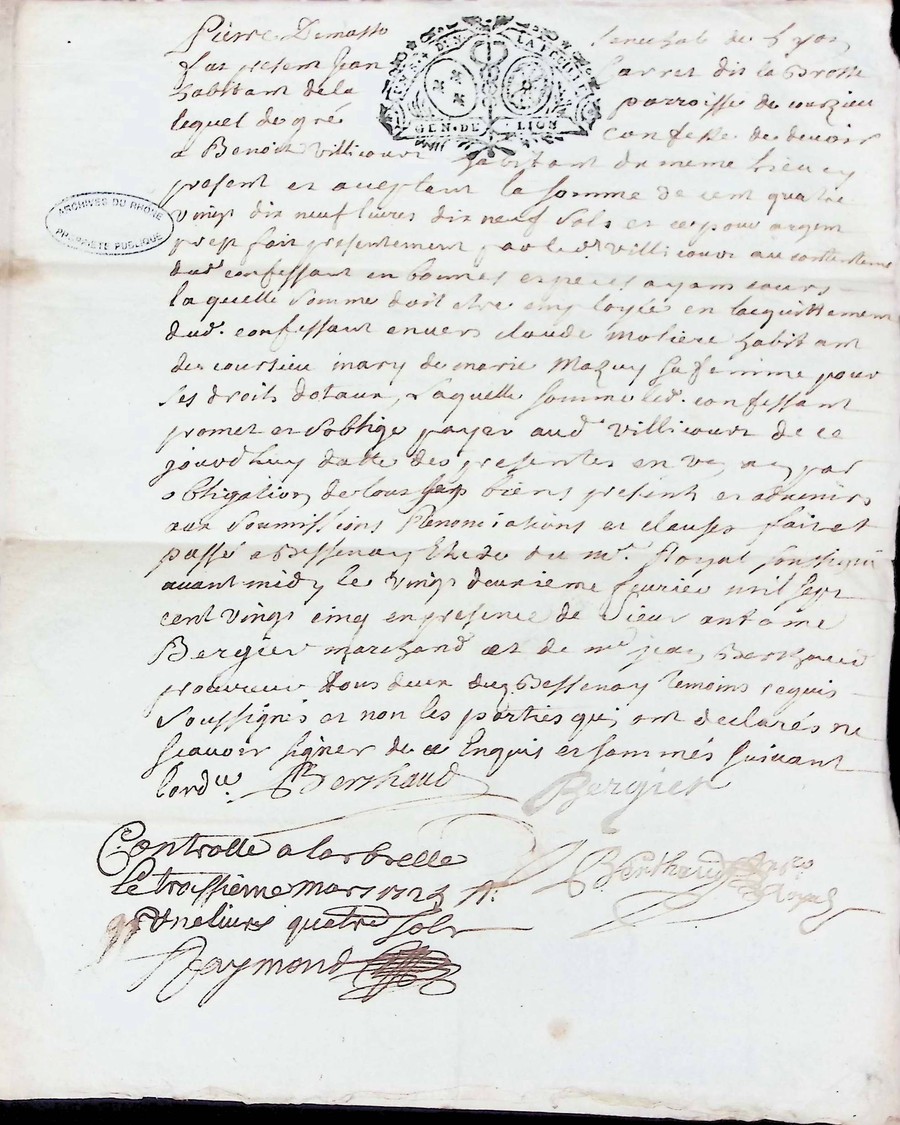 Pierre Demasso senechal de Lyon
fut present Jean Carret dit la Brosse
habitant de la parroisse de courzieu
lequel de gré confesse de devoir
a Benoit Villicourt habitant du meme lieu cy
present et aceptant la somme de cent quatre
vingt dix neuf livres dix neuf sols et ce pour argent
prest fait presentement par led. Villicourt au contentement
dud. confessant en bonnes especes ayant cours
laquelle somme doit etre employée en lacquittement
dud. confessant envers claude Moliere habitant
de coursieu mary de marie Mazuy sa femme pour
ses droits dotaux, Laquelle somme led. confessant
promet et soblige payer aud. Villicourt de ce
jourdhuy datte des presentes en par
obligation de tous ses biens presents et advenirs
aux soumissions Renonciations et clauses fait et
passé a Bessenay Etude du me. Royal soussigné
avant midy le vingt deuxieme fevrier mil sept
cent vingt cinq en presence de sieur antoine
Bergier marchand et de me jean Berthaud
procureur tous deux dud. Bessenay temoins requis
soussignés et non les parties qui ont declarés ne
scavoir signer de ce Enquis et sommés suivant
lord.ce Berthaud Bergier
Controllé a larbrelle
le troisSième mars 1725
une livre quatre sols
Raymond
Berthaud Royal
GEN. DE LION
ARCHIVES DU RHÔNE
PROPRIÉTÉ PUBLIQUE